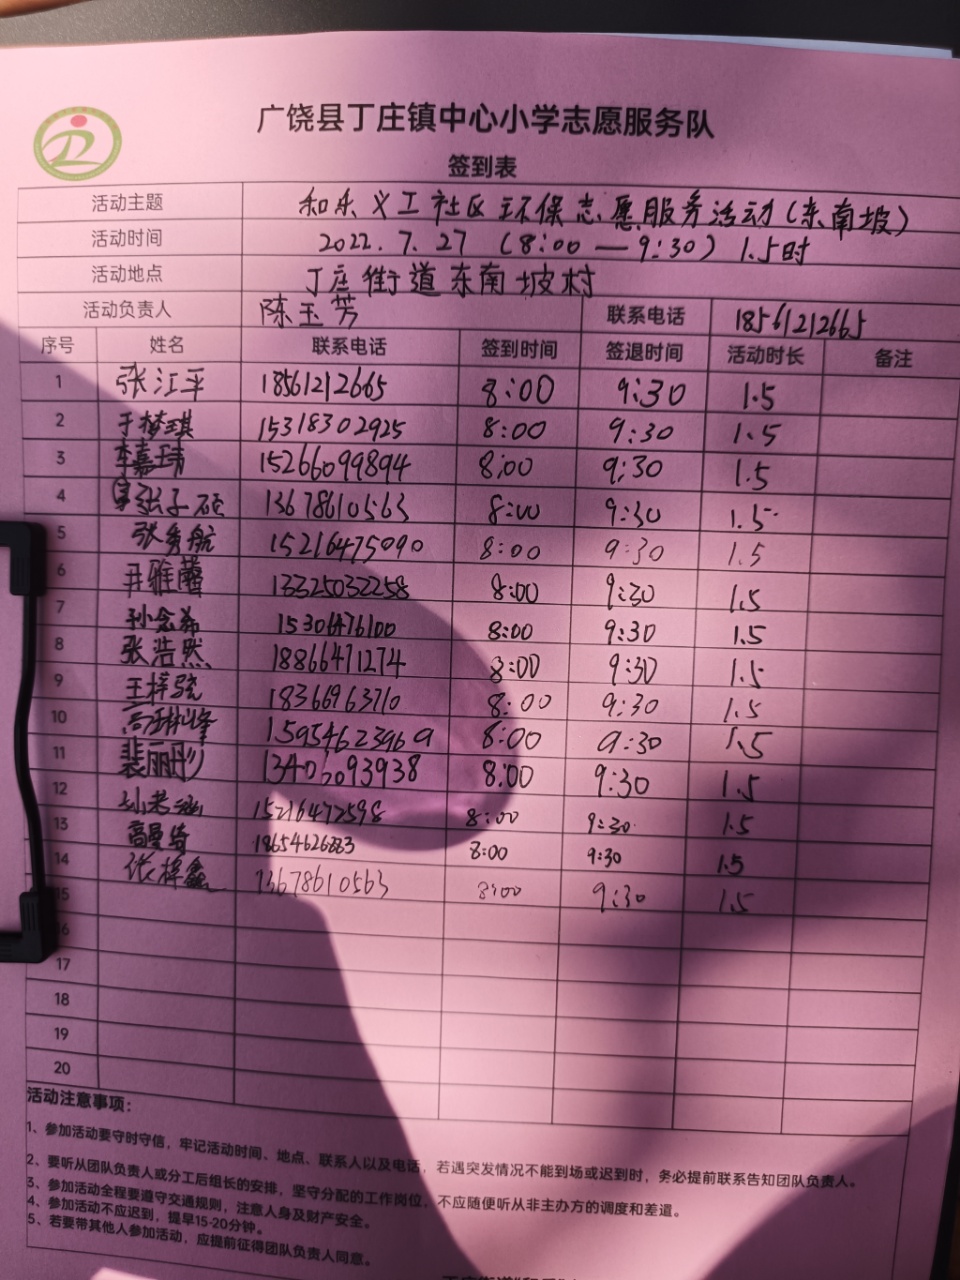 广饶县丁庄镇中心小学志愿服务队
签到表
活动主题 和乐义工社区环保志愿服务活动(东南坡)
活动时间 2022.7.27 (8:00—9:30) 1.5时
活动地点 丁庄街道东南坡村
活动负责人 陈玉芳 联系电话 18561212665
序号 姓名 联系电话 签到时间 签退时间 活动时长 备注
1 张江平 18561212665 8:00 9:30 1.5
2 于梦琪 15318302925 8:00 9:30 1.5
3 李嘉玮 15266099894 8:00 9:30 1.5
4 张子硕 13678610563 8:00 9:30 1.5
5 张秀航 15216475090 8:00 9:30 1.5
6 尹雅馨 13325032258 8:00 9:30 1.5
7 孙念希 15306476100 8:00 9:30 1.5
8 张浩然 18866471274 8:00 9:30 1.5
9 王梓骁 18366963710 8:00 9:30 1.5
10 15954623969 8:00 9:30 1.5
11 裴丽彤 8:00 9:30 1.5
12 15216472598 8:00 9:30 1.5
13 高曼绮 8:00 9:30 1.5
14 张梓鑫 13678610563 8:00 9:30 1.5
15
16
17
18
19
20
活动注意事项:
1、参加活动要守时守信,牢记活动时间、地点、联系人以及电话,若遇突发情况不能到场或迟到时,务必提前联系告知团队负责人。
2、要听从团队负责人或分工后组长的安排,坚守分配的工作岗位,不应随便听从非主办方的调度和差遣。
3、参加活动全程要遵守交通规则,注意人身及财产安全。
4、参加活动不应迟到,提早15-20分钟。
5、若要带其他人参加活动,应提前征得团队负责人同意。